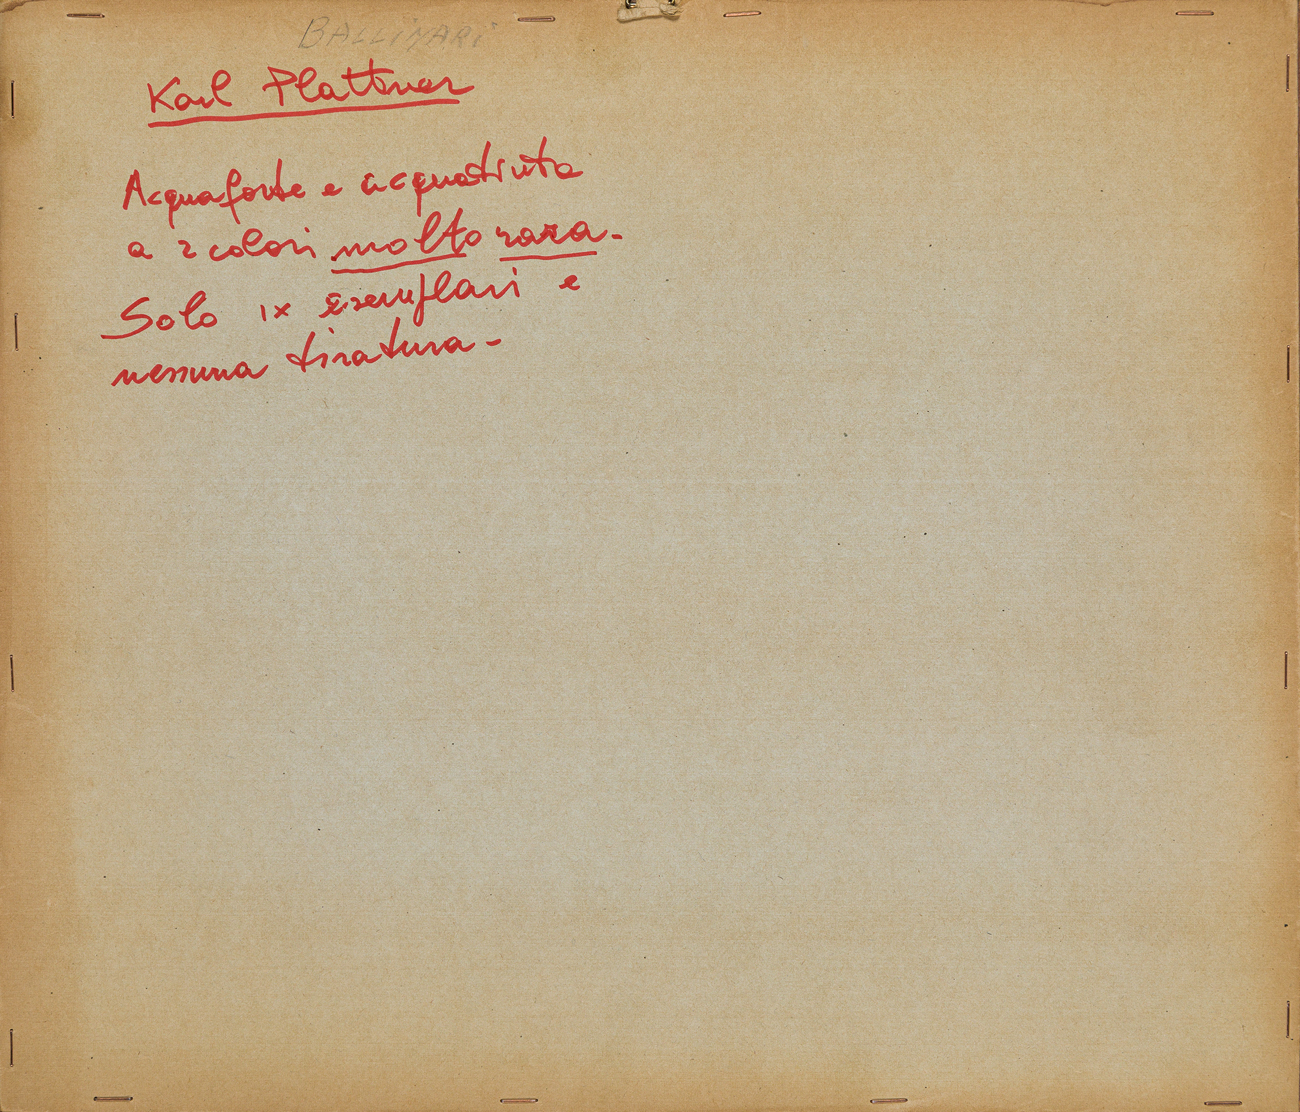 BALLINARI
Karl Plattner
Acquaforte e acquatinta
a 2 colori molto rara-
Solo IX esemplari e
nessuna tiratura-